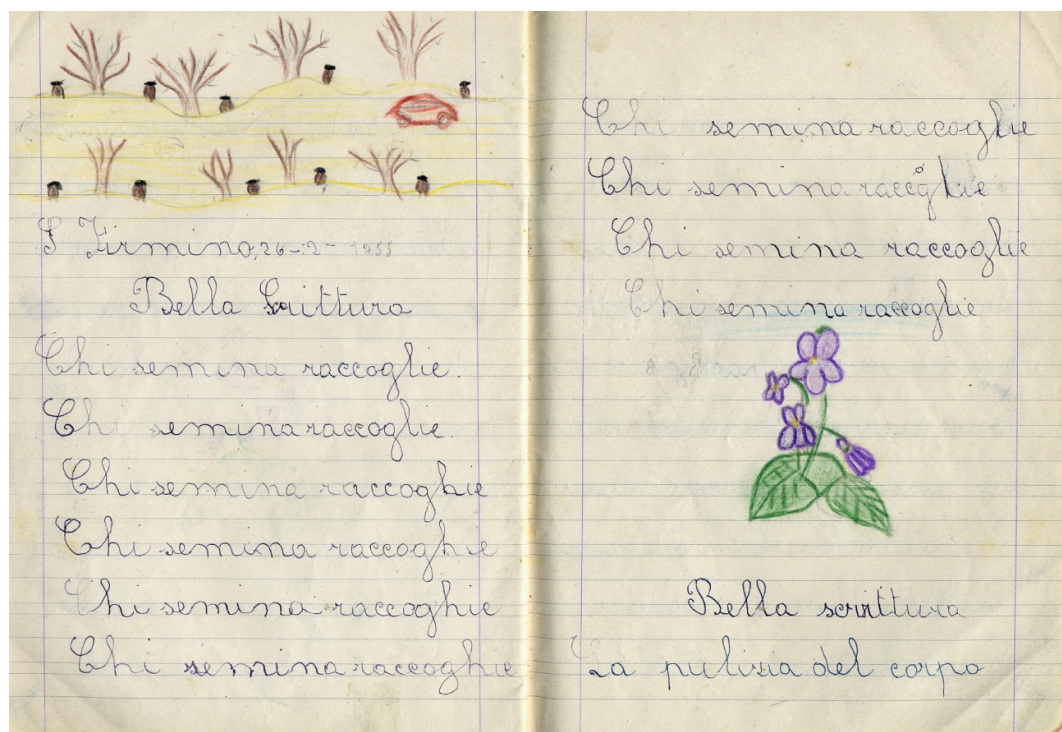 S. Firmino, 26-2-1955
Bella Scrittura
Chi semina raccoglie.
Chi semina raccoglie.
Chi semina raccoghie
Chi semina raccoghie
Chi semina raccoghie
Chi semina raccoghie
Chi semina raccoglie
Chi semina raccoglie
Chi semina raccoglie
Chi semina raccoglie
Bella scrittura
La pulizia del corpo